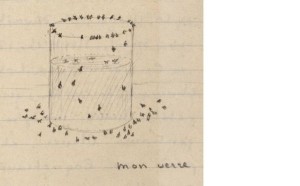 mon verre